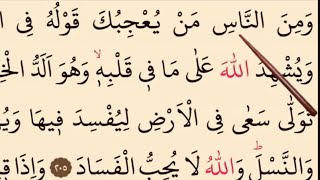 وَمِنَ النَّاسِ مَنْ يُعْجِبُكَ قَوْلُهُ فِي
وَيُشْهِدُ اللهَ عَلٰى مَا فٖي قَلْبِهٖۙ وَهُوَ اَلَدُّ
تَوَلّٰى سَعٰى فِي الْاَرْضِ لِيُفْسِدَ فٖيهَا
وَالنَّسْلَۜ وَاللهُ لَا يُحِبُّ الْفَسَادَ ﴿٢٠٥﴾ وَاِذَا